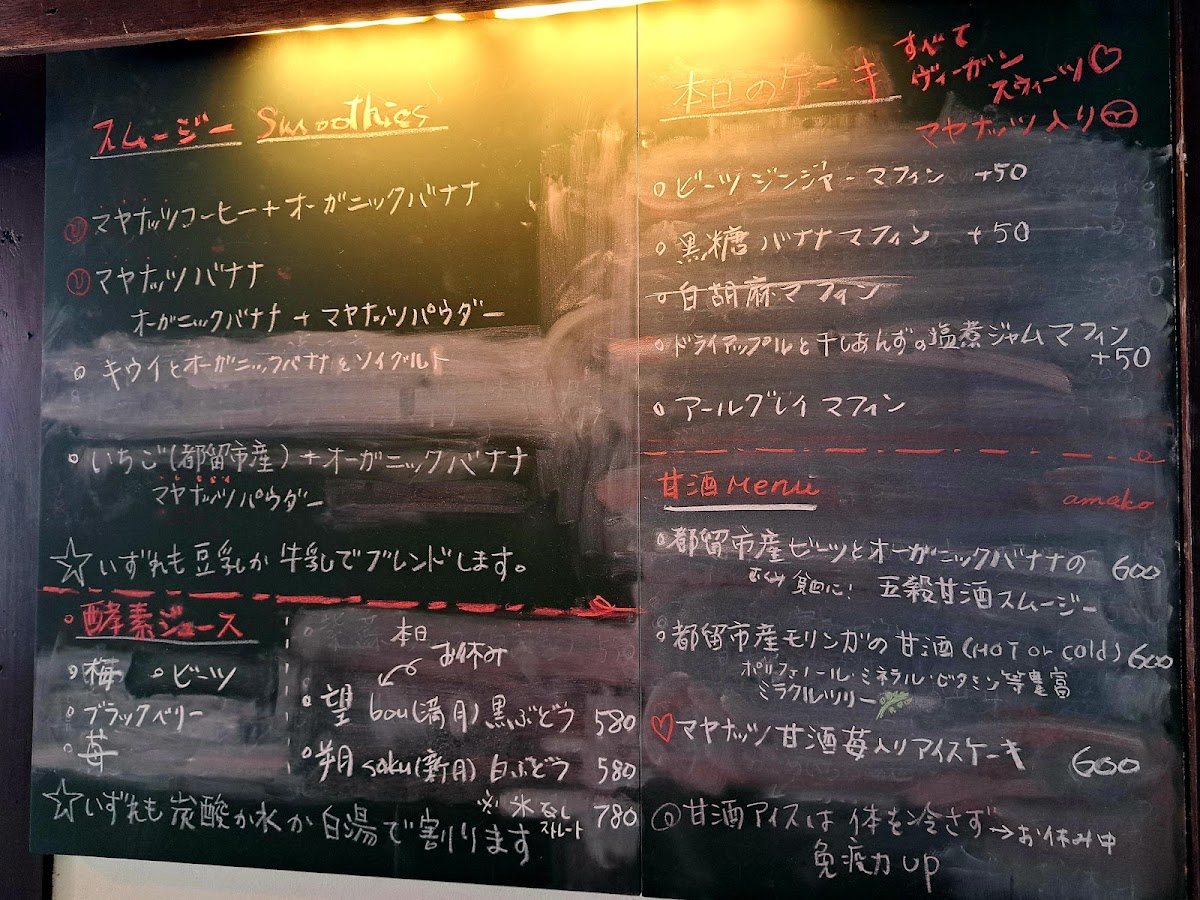 スムージー Smoothies
マヤナッツコーヒー+オーガニックバナナ
マヤナッツバナナ
オーガニックバナナ + マヤナッツパウダー
キウイとオーガニックバナナ&ソイグルト
いちご(都留市産)+オーガニックバナナ
マヤナッツパウダー
☆いずれも豆乳か牛乳でブレンドします。
酵素ジュース
梅 ビーツ
ブラックベリー
苺
本日
お休み
望 bou(満月)黒ぶどう 580
朔 saku(新月)白ぶどう 580
※氷なし
ストレート 780
☆いずれも炭酸か水か白湯で割ります
本日のケーキ
すべて
ヴィーガン
スウィーツ♡
マヤナッツ入り
ビーツジンジャーマフィン +50
黒糖バナナマフィン +50
白胡麻マフィン
ドライアップルと干しあんずの塩煮ジャムマフィン
+50
アールグレイマフィン
甘酒Menu
amako
都留市産ビーツとオーガニックバナナの 600
五穀甘酒スムージー
都留市産モリンガの甘酒(HOT or cold) 600
ポリフェノール・ミネラル・ビタミン等豊富
ミラクルツリー
♡マヤナッツ甘酒苺入りアイスケーキ 600
甘酒アイスは体を冷さず→お休み中
免疫力up